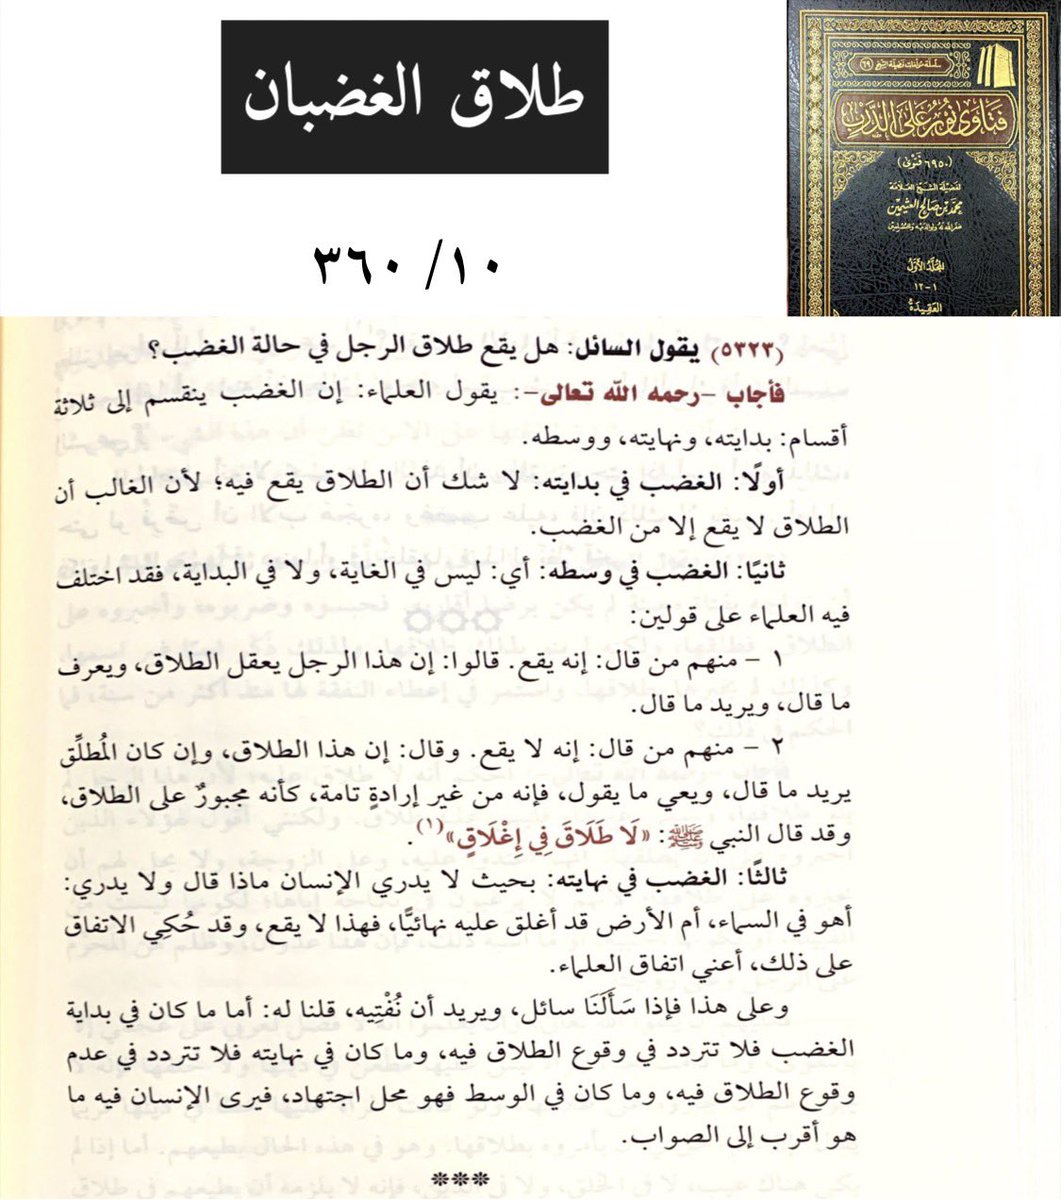 طلاق الغضبان
١٠/ ٣٦٠
سلسلة مؤلفات فضيلة الشيخ (٦٩)
فتاوى نور على الدرب
(٦٩٥٠ فتوى)
لفضيلة الشيخ العلامة
محمد بن صالح العثيمين
غفر الله له ولوالديه وللمسلمين
المجلد الأول
١-١٢
العقيدة
(٥٣٢٣) يقول السائل: هل يقع طلاق الرجل في حالة الغضب؟
فأجاب -رحمه الله تعالى-: يقول العلماء: إن الغضب ينقسم إلى ثلاثة
أقسام: بدايته، ونهايته، ووسطه.
أولًا: الغضب في بدايته: لا شك أن الطلاق يقع فيه؛ لأن الغالب أن
الطلاق لا يقع إلا من الغضب.
ثانيًا: الغضب في وسطه: أي: ليس في الغاية، ولا في البداية، فقد اختلف
فيه العلماء على قولين:
١ - منهم من قال: إنه يقع. قالوا: إن هذا الرجل يعقل الطلاق، ويعرف
ما قال، ويريد ما قال.
٢ - منهم من قال: إنه لا يقع. وقال: إن هذا الطلاق، وإن كان المُطلِّق
يريد ما قال، ويعي ما يقول، فإنه من غير إرادةٍ تامة، كأنه مجبورٌ على الطلاق،
وقد قال النبي ﷺ: «لَا طَلَاقَ فِي إِغْلَاقٍ»(١).
ثالثًا: الغضب في نهايته: بحيث لا يدري الإنسان ماذا قال ولا يدري:
أهو في السماء، أم الأرض قد أغلق عليه نهائيًّا، فهذا لا يقع، وقد حُكِي الاتفاق
على ذلك، أعني اتفاق العلماء.
وعلى هذا فإذا سَأَلَنَا سائل، ويريد أن نُفْتِيه، قلنا له: أما ما كان في بداية
الغضب فلا تتردد في وقوع الطلاق فيه، وما كان في نهايته فلا تتردد في عدم
وقوع الطلاق فيه، وما كان في الوسط فهو محل اجتهاد، فيرى الإنسان فيه ما
هو أقرب إلى الصواب.
***